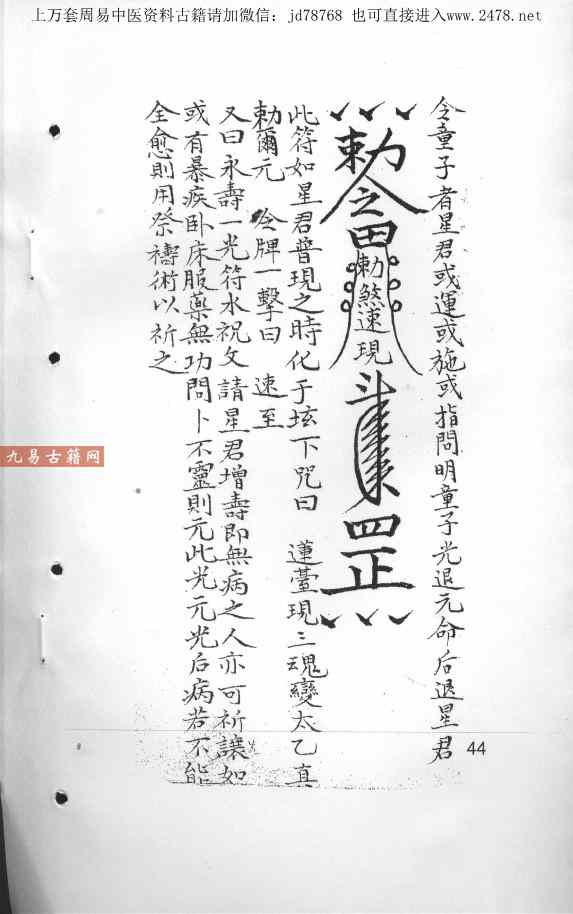 上万套周易中医资料古籍请加微信：jd78768 也可直接进入www.2478.net
令童子者星君或運或施或指問明童子光退元命后退星君
勅令雷
勅煞速現
罡
此符如星君普現之時化于坛下咒曰 蓮臺現三魂變太乙真
勅爾元 令牌一擊曰 速至
又曰永壽一光符水祝文請星君增壽即無病之人亦可祈讓如
或有暴疾卧床服藥無功問卜不靈則元此光元光后病若不能
全愈則用祭禱術以祈之
九易古籍网
44